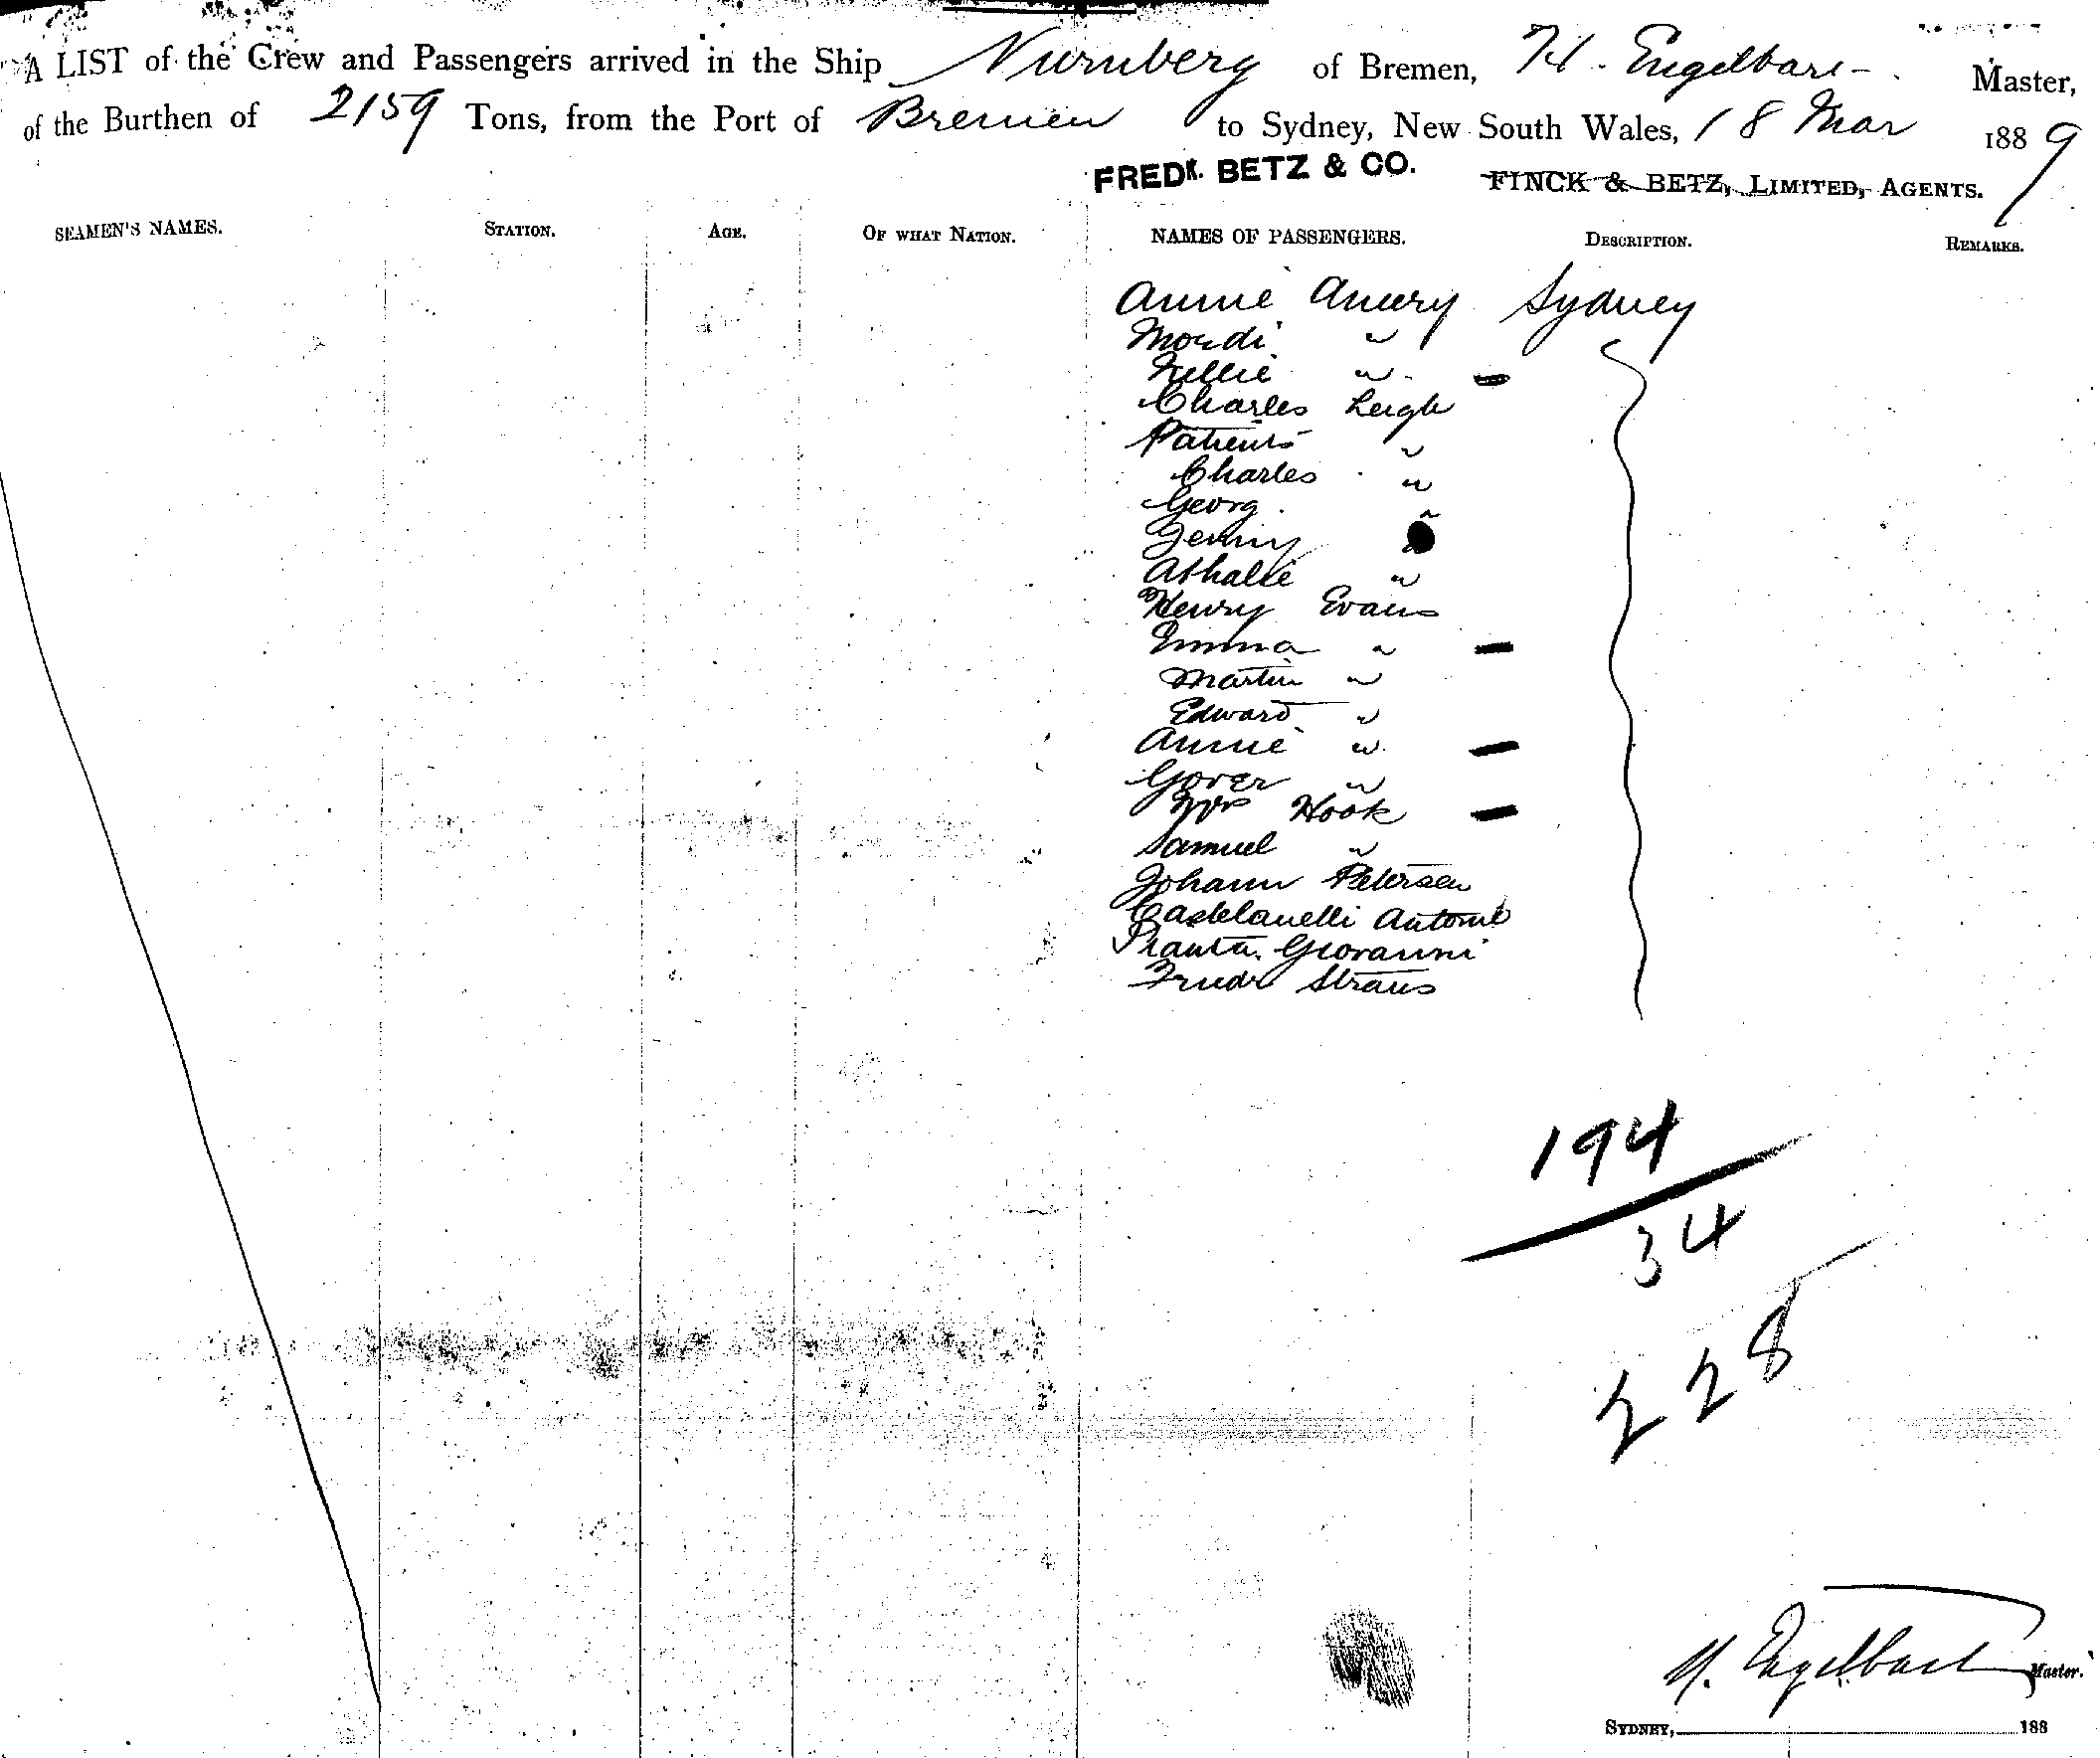 A LIST of the Crew and Passengers arrived in the Ship Nurnberg of Bremen, H. Engelbart Master,
of the Burthen of 2159 Tons, from the Port of Bremen to Sydney, New South Wales, 18 Mar 1889
FREDK. BETZ & CO. FINCK & BETZ, LIMITED, AGENTS.
SEAMEN'S NAMES. STATION. AGE. OF WHAT NATION. NAMES OF PASSENGERS. DESCRIPTION. REMARKS.
Annie Sydney
"
Nellie "
Charles Leigh
"
Charles "
Georg "
Jenny "
Athalie "
Henry Evans
Emma "
Martin "
Edward "
Annie "
Gover "
Mrs Hook
Samuel "
Johann Petersen
Castelanelli Antonio
Pianta Giovanni
Friedr Straus
194
34
228
H. Engelbart Master.
SYDNEY, 188